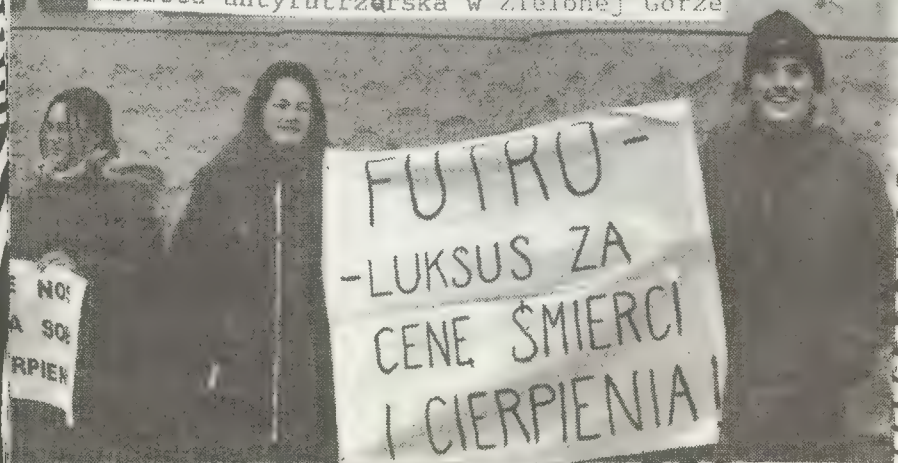 antyfutrzarska w Zielonej Górze
FUTRO -
- LUKSUS ZA
CENĘ ŚMIERCI
I CIERPIENIA!
NOS
A SO
RPIEN